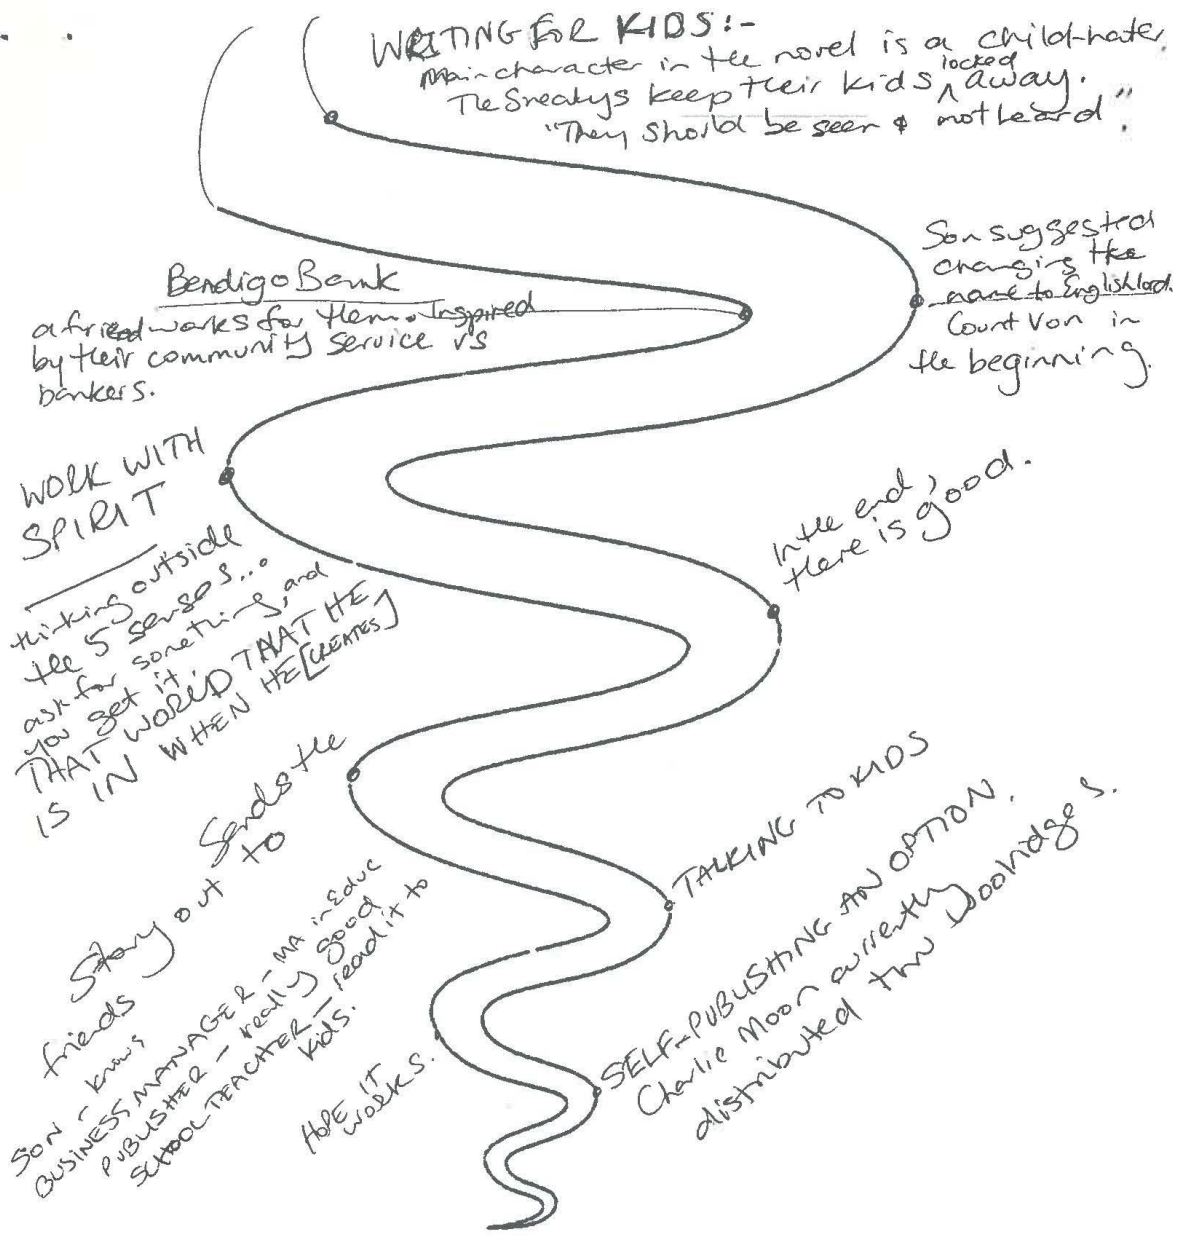 WRITING FOR KIDS:-
Main character in the novel is a child-hater.
The Sneakys keep their kids locked away.
"They should be seen & not heard".
Son suggested
changing the
name to English lord.
Count Von in
the beginning.
Bendigo Bank
a friend works for them. Inspired
by their community service vs
bankers.
WORK WITH
SPIRIT
thinking outside
the 5 senses...
ask for something, and
you get it.
THAT WORLD THAT HE
IS IN WHEN HE [CREATES]
In the end,
there is good.
Sends the
story out to
friends
SON - knows
BUSINESS MANAGER - MA in Educ
PUBLISHER - really good
SCHOOL TEACHER - read it to
kids.
TALKING TO KIDS
HOPE IT
WORKS.
SELF-PUBLISHING AN OPTION.
Charlie Moon currently
distributed thru Doolridges.